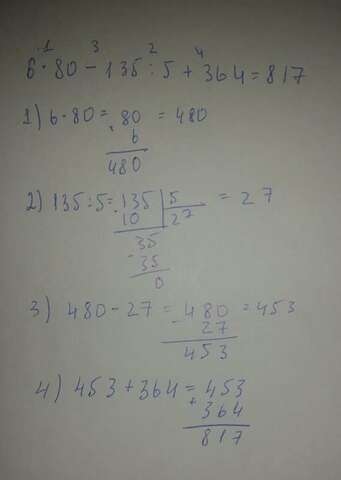 1 3 2 4
6·80-135:5+364=817
1) 6·80= 80 =480
· 6
480
2) 135:5= 135 | 5 = 27
- 10 | 27
35
- 35
0
3) 480-27= 480 =453
- 27
453
4) 453+364= 453
+ 364
817